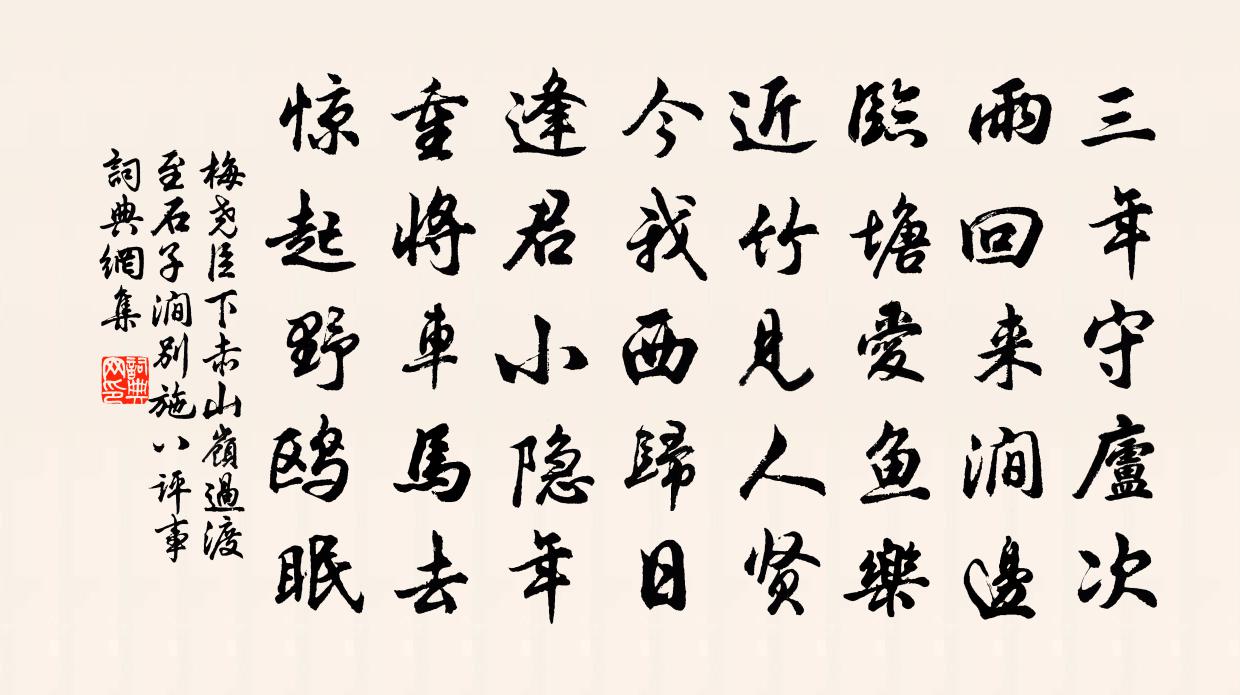 三年守廬次
雨回来澗邊
臨塘愛鱼樂
近竹見人贤
今我西歸日
逢君小隐年
重將車馬去
惊起野鸥眠
梅尧臣下赤山嶺過渡
至石子澗别施八评事
詞典網集
詞典网印